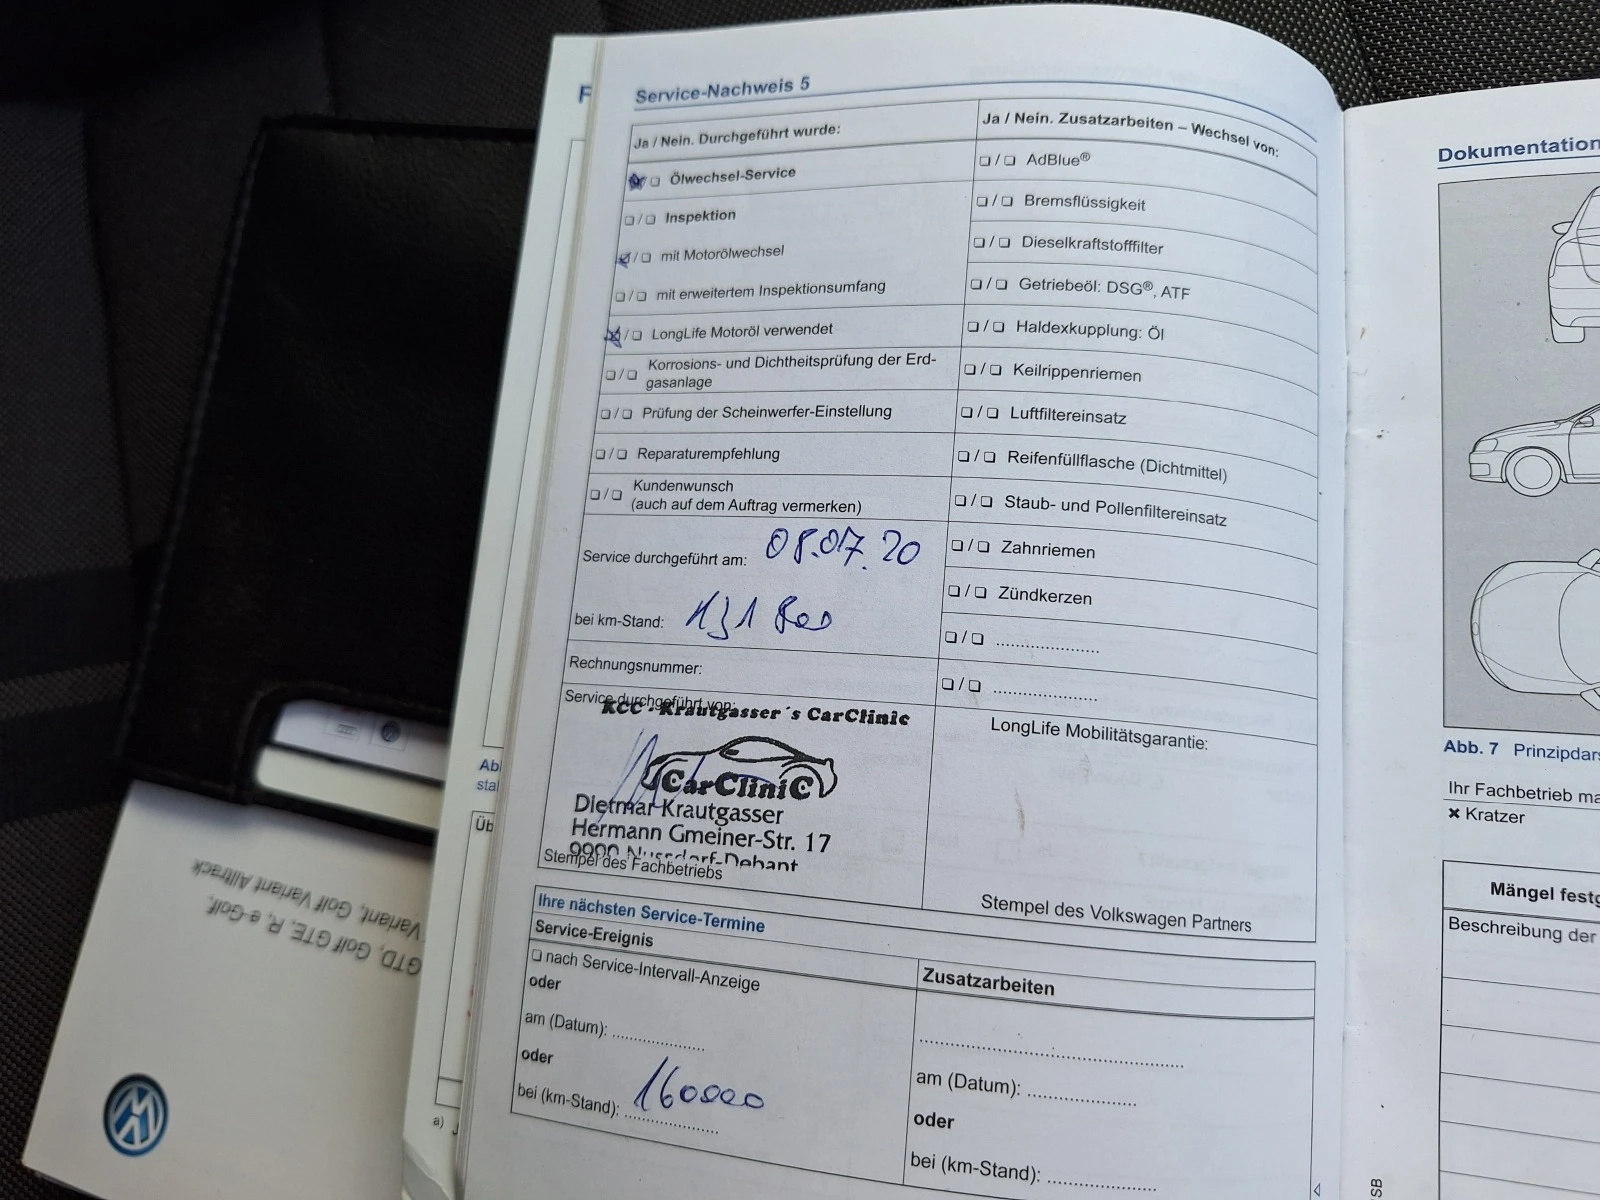 F
Service-Nachweis 5
Ja / Nein. Durchgeführt wurde:
❏ / ❏ Ölwechsel-Service
❏ / ❏ Inspektion
❏ / ❏ mit Motorölwechsel
❏ / ❏ mit erweitertem Inspektionsumfang
❏ / ❏ LongLife Motoröl verwendet
❏ / ❏ Korrosions- und Dichtheitsprüfung der Erd-
gasanlage
❏ / ❏ Prüfung der Scheinwerfer-Einstellung
❏ / ❏ Reparaturempfehlung
❏ / ❏ Kundenwunsch
(auch auf dem Auftrag vermerken)
Service durchgeführt am: 08.07.20
bei km-Stand: 131 800
Rechnungsnummer:
Service durchgeführt von:
KCC - Krautgasser´s CarClinic
CarCliniC
Dietmar Krautgasser
Hermann Gmeiner-Str. 17
9990 Nussdorf-Debant
Stempel des Fachbetriebs
Ja / Nein. Zusatzarbeiten – Wechsel von:
❏ / ❏ AdBlue®
❏ / ❏ Bremsflüssigkeit
❏ / ❏ Dieselkraftstofffilter
❏ / ❏ Getriebeöl: DSG®, ATF
❏ / ❏ Haldexkupplung: Öl
❏ / ❏ Keilrippenriemen
❏ / ❏ Luftfiltereinsatz
❏ / ❏ Reifenfüllflasche (Dichtmittel)
❏ / ❏ Staub- und Pollenfiltereinsatz
❏ / ❏ Zahnriemen
❏ / ❏ Zündkerzen
❏ / ❏ ......................
❏ / ❏ ......................
LongLife Mobilitätsgarantie:
Stempel des Volkswagen Partners
Ihre nächsten Service-Termine
Service-Ereignis
❏ nach Service-Intervall-Anzeige
oder
am (Datum): ....................
oder
bei (km-Stand): 160000
Zusatzarbeiten
..........................................
am (Datum): .......................
oder
bei (km-Stand): .......................
Dokumentation
Abb. 7 Prinzipdars
Ihr Fachbetrieb ma
✖ Kratzer
Mängel festg
Beschreibung der
SB
Abb
stal
Üb
a)
GTD, Golf GTE, R, e-Golf,
Variant, Golf Variant Alltrack